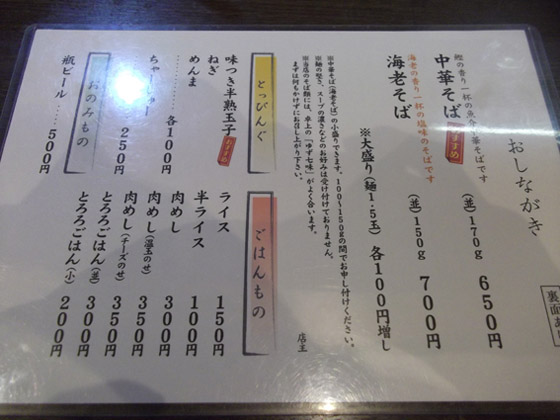 おしながき
鰹の香り一杯の魚介中華そばです
中華そば おすすめ (並) 170g 650円
海老の香り一杯の塩味のそばです
海老そば (並) 150g 700円
※大盛り(麺1.5玉) 各100円増し
※中華そば(海老そば)の小盛りできます。100〜150gの間でお申し付けください。
※麺の堅さ、スープの濃さなどのお好みは受け付けておりません。
※当店のそば類には、卓上の「ゆず七味」がよく合います。
まずは何もかけずにお召し上がり下さい。
店主
とっぴんぐ
味つき半熟玉子 おすすめ
ねぎ
めんま
各100円
ちゃーしゅー
250円
おのみもの
瓶ビール 500円
ごはんもの
ライス 150円
半ライス 100円
肉めし 300円
肉めし(温玉のせ) 350円
肉めし(チーズのせ) 350円
とろろごはん(並) 300円
とろろごはん(小) 200円
裏面あり